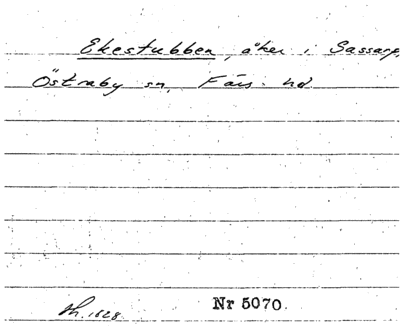 Ekestubben, åker i Sassarp,
Östraby sn, Färs hd.
1828
Nr 5070.